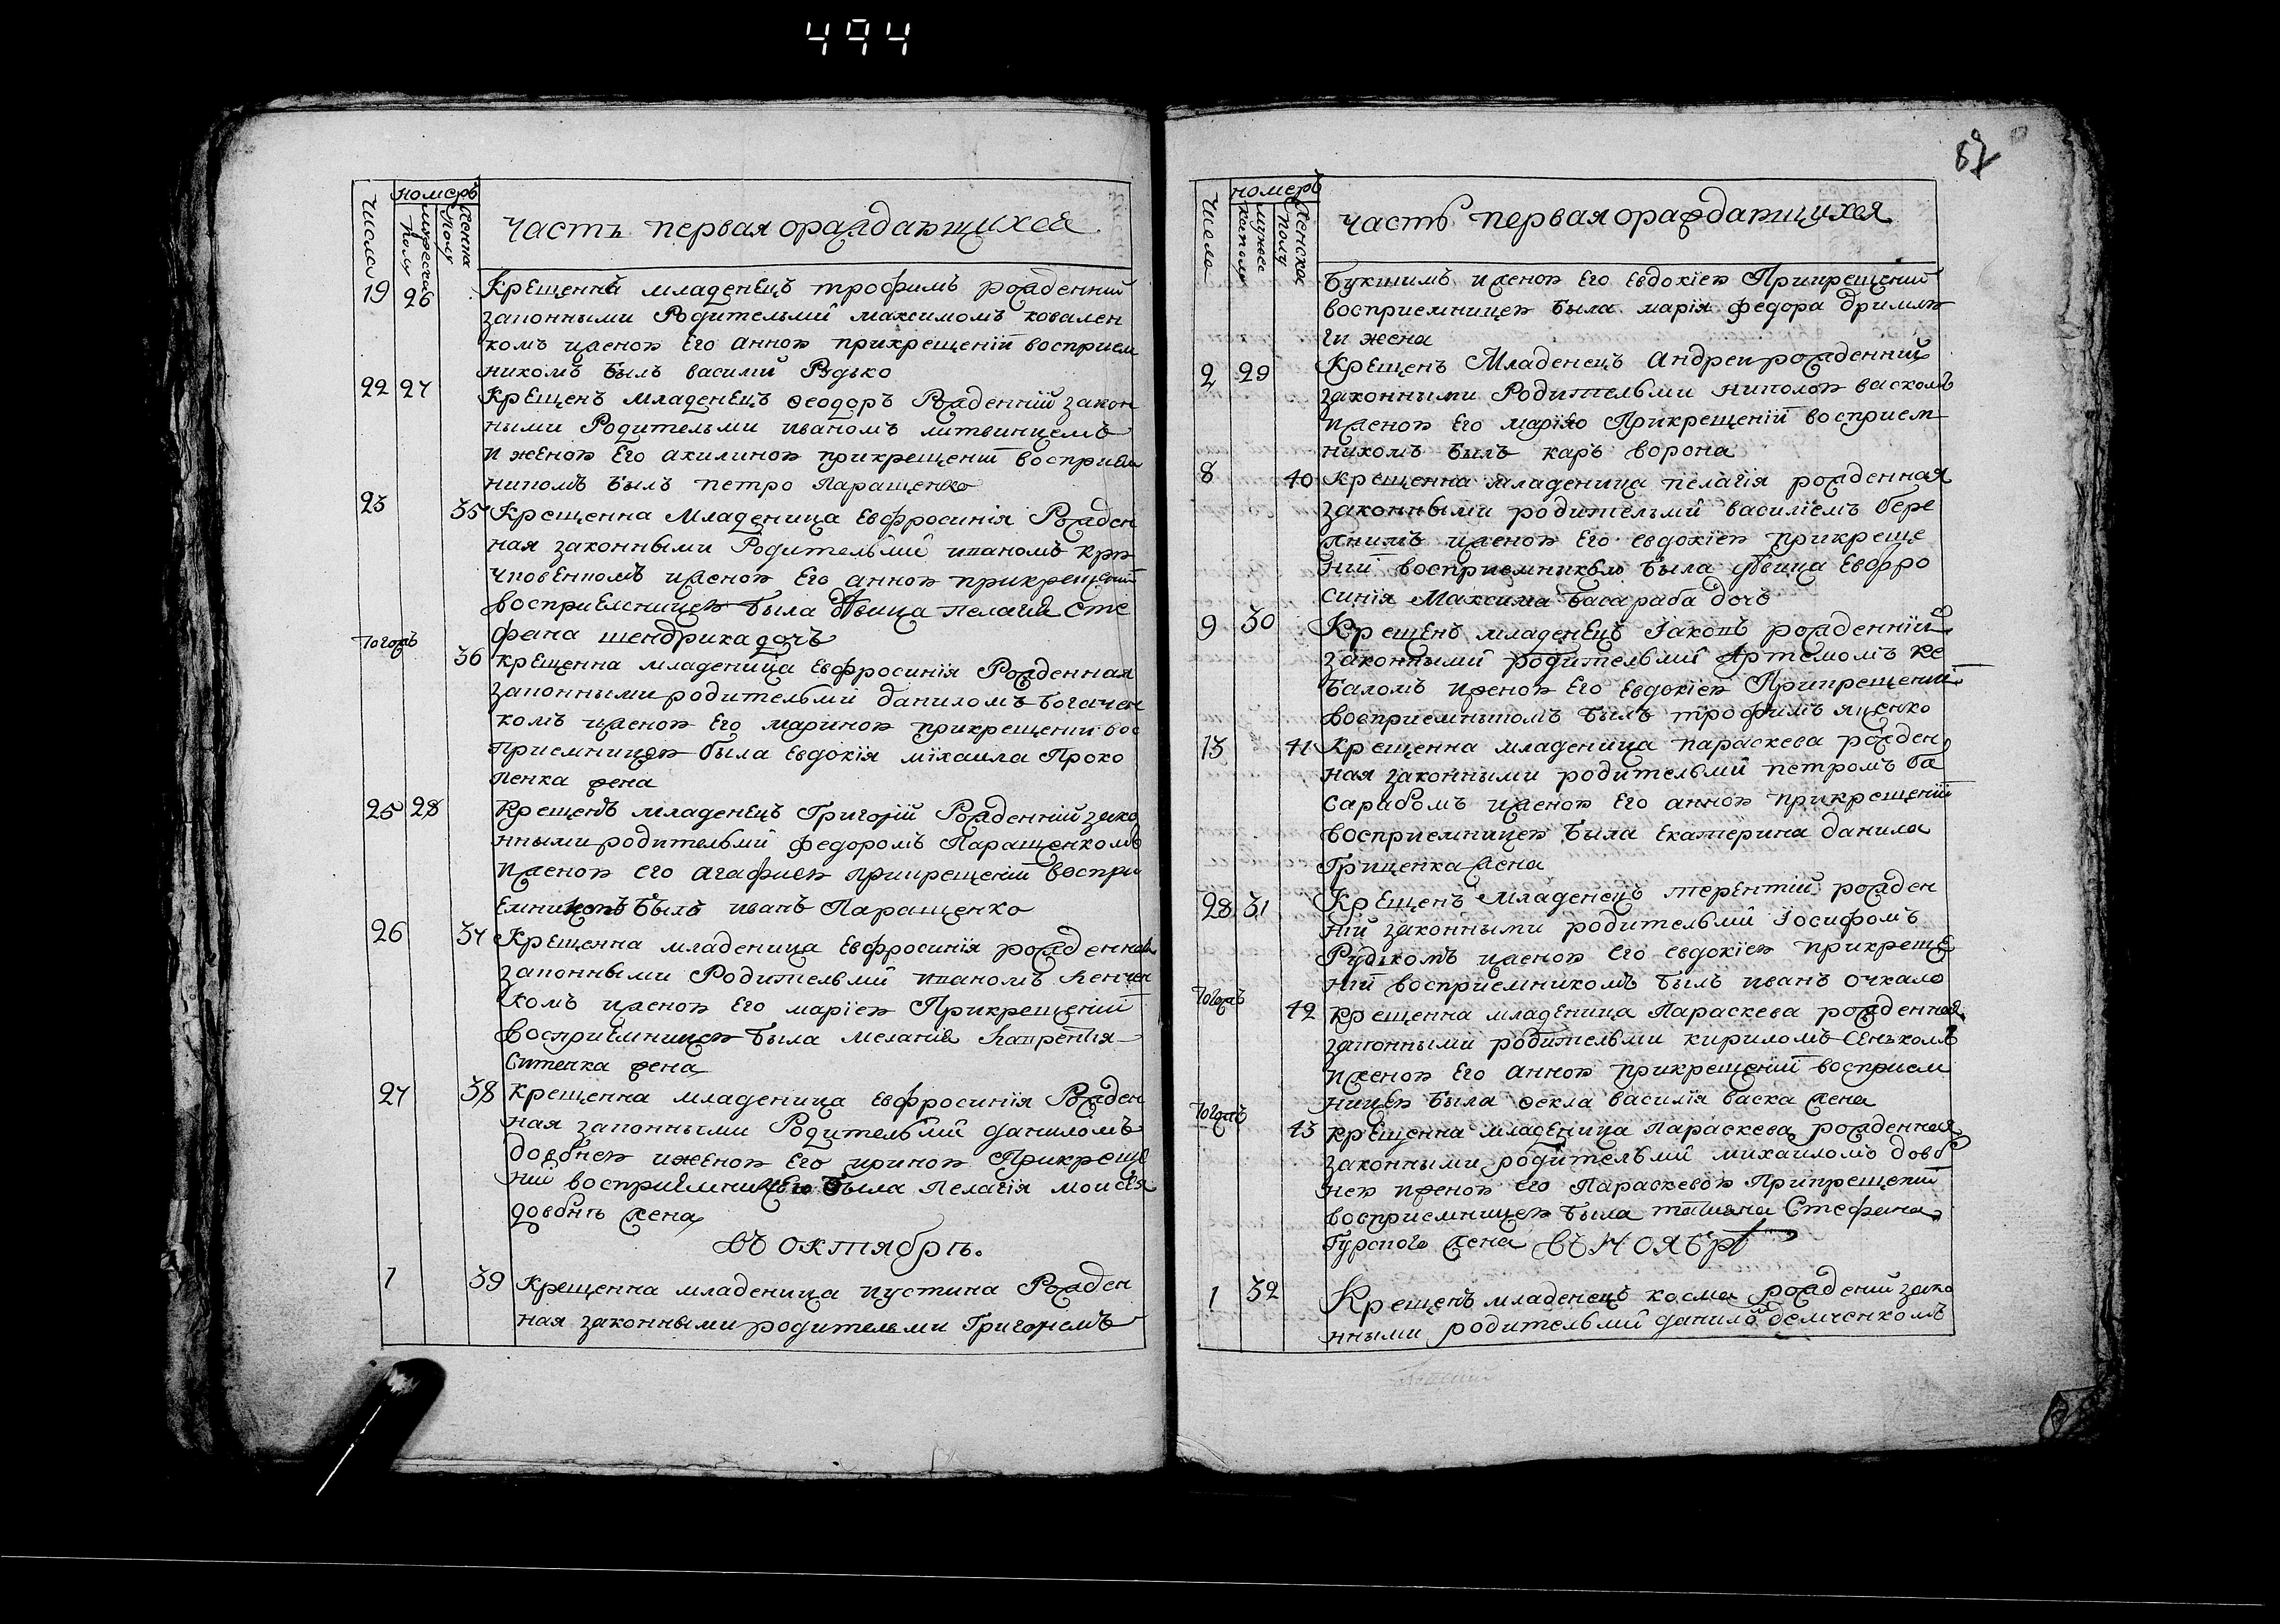 494
номеръ
Числа
мужеска полу
женска полу
часть первая ораждающихся
19 26 Крещенный младенецъ трофимъ рожденний
законными Родительми максимомъ ковален
комъ иженою Его анною прикрещенїи восприем
никомъ былъ василий Рудько
22 27 Крещенъ младенецъ ѳеодоръ Рожденнїй закон
ными Родительми иваномъ литвинцемъ
и женою Его акилиною прикрещенїи восприем
никомъ былъ петро Паращенко
23 35 Крещенна Младеница Евфросинїя Рожден
ная законными Родительми иваномъ кри
Его анною прикрещенїи
восприемницею была двица пелагия Сте
фана шендрика дочъ
тогожъ 36 крещенна младеница Евфросинїя Рожденная
законными родительми даниломъ богачен
комъ иженою Его мариною прикрещении вос
приемницею была Евдокїя мїхаила Проко
пенка жена
25 28 Крещенъ младенецъ Григорїй Рожденнїй зако
нными родительми федоромъ Паращенкомъ
иженою его агафиею прикрещенїи воспри
емникомъ былъ иванъ Паращенко
26 37 Крещенна младеница Евфросинїя рожденная
законными Родительми иваномъ
комъ иженою Его марїею Прикрещенїи
восприемницею была меланїя Лаврентїя
Ситенка жена
27 38 крещенна младеница Евфросинїя Рожден
ная законными Родительми даниломъ
довбнею иженою Его ириною Прикреще
нїи восприемницею была Пелагїя моисея
довбнѣ жена
въ октябрѣ.
1 39 Крещенна младеница иустина Рожден
ная законными родительми Григориемъ
номеръ
Числа
мужеска полу
женска полу
часть первая ораждающихся
букшимъ иженою Его Евдокїею Прикрещенїи
восприемницею была марїя федора дримлю
ги жена
2 29 Крещенъ Младенецъ Андреи рожденний
законными Родительми николою васкомъ
иженою Его марїею Прикрещенїи восприем
никомъ былъ каръ ворона
8 40 Крещенна младеница пелагїя рожденная
законными родительми василїемъ бере
жнимъ иженою Его евдокїею прикреще
нїи восприемникею была двица Евфро
синїя Максима басараба дочъ
9 30 Крещенъ младенецъ Іаковъ рожденнїй
законными родительми Артемомъ ке
баломъ иженою Его Евдокїею Прикрещенїи
восприемникомъ былъ трофимъ яценко
13 41 Крещенна младеница параскева рожден
ная законными родительми петромъ ба
сарабомъ иженою Его анною прикрещенїи
восприемницею была Екатерина данила
Грищенка жена
28 31 Крещенъ младенецъ терентїй рожден
нїй законными родительми Їосифомъ
Рудькомъ иженою Его евдокїею прикреще
нїи восприемникомъ былъ иванъ очкало
тогожъ 42 крещенна младеница Параскева рожденная
законными родительми кириломъ Сенькомъ
иженою Его анною прикрещенїи восприем
ницею была ѳекла василїя васка жена
тогожъ 43 крещенна младеница Параскева рожденная
законными родительми михаиломъ довб
нею иженою Его Параскевою Прикрещенїи
восприемницею была татияна Стефана
Гурского жена въ ноябрѣ
1 32 Крещенъ младенецъ косма рожденїй зако
нными родительми данило демченкомъ